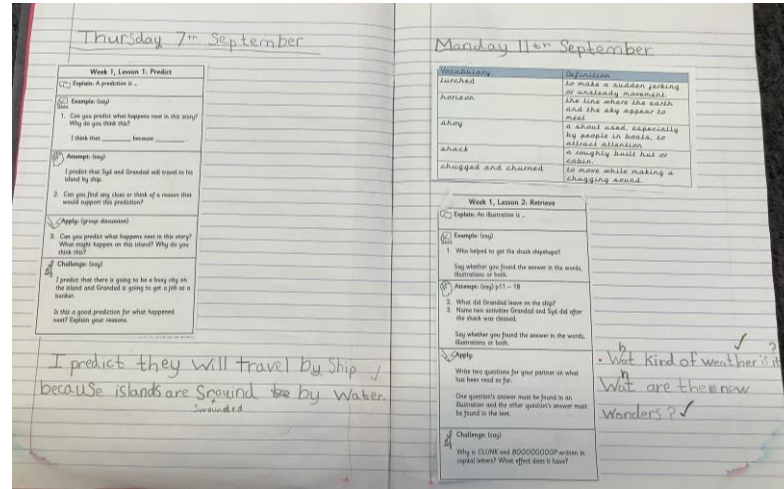 Thursday 7th September
Week 1, Lesson 1: Predict
Explain: A prediction is ..
Example: (say)
1. Can you predict what happens next in this story?
Why do you think this?
I think that ________ because ________.
Attempt: (say)
I predict that Syd and Grandad will travel to his
island by ship.
2. Can you find any clues or think of a reason that
would support this prediction?
Apply: (group discussion)
3. Can you predict what happens next in this story?
What might happen on this island? Why do you
think this?
Challenge: (say)
I predict that there is going to be a busy city on
the island and Grandad is going to get a job as a
banker.
Is this a good prediction for what happened
next? Explain your reasons.
I predict they will travel by Ship
because islands are Sround by Water.
Surrounded
Manday 11th September
Vocabulary Definition
Lurched to make a sudden jerking
or unsteady movement.
horizon the line where the earth
and the sky appear to
meet
ahoy a shout used, especially
by people in boats, to
attract attention
shack a roughly built hut or
cabin.
chugged and churned to move while making a
chugging sound.
Week 1, Lesson 2: Retrieve
Explain: An illustration is ..
Example: (say)
1. Who helped to get the shack shipshape?
Say whether you found the answer in the words,
illustrations or both.
Attempt: (say) p11 – 18
2. What did Grandad leave on the ship?
3. Name two activities Grandad and Syd did after
the shack was cleaned.
Say whether you found the answer in the words,
illustrations or both.
Apply:
Write two questions for your partner on what
has been read so far.
One question's answer must be found in an
illustration and the other question's answer must
be found in the text.
Challenge: (say)
Why is CLUNK and written in
capital letters? What effect does it have?
h ?
. Wat kind of weather is it
h
Wat are the new
Wonders?